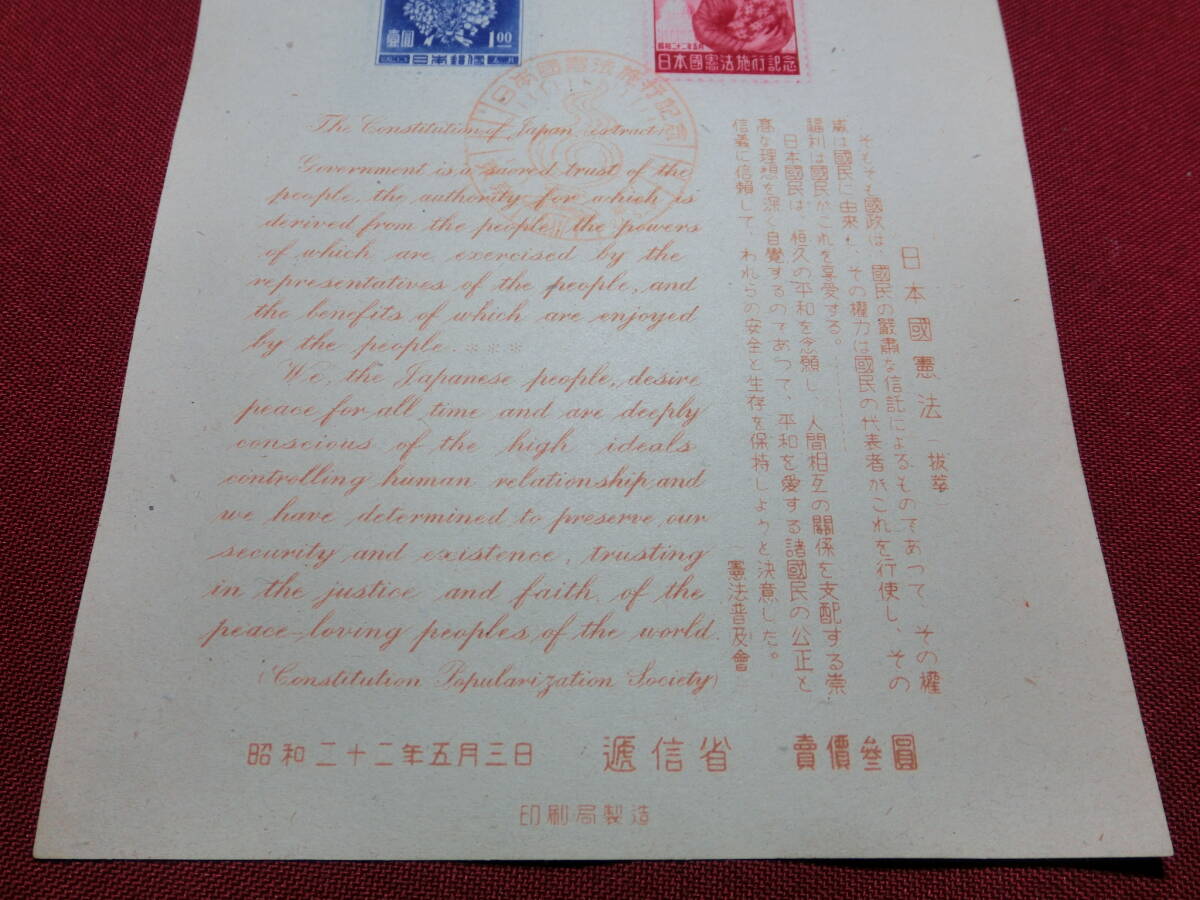 壹圓
1.00
日本郵便
昭和二十二年五月
日本國憲法施行記念
日本國憲法施行記念
The Constitution of Japan (extract)
Government is a sacred trust of the
people, the authority for which is
derived from the people, the powers
of which are exercised by the
representatives of the people, and
the benefits of which are enjoyed
by the people. ＊＊＊
We, the Japanese people, desire
peace for all time and are deeply
conscious of the high ideals
controlling human relationship and
we have determined to preserve our
security and existence, trusting
in the justice and faith of the
peace-loving peoples of the world.
(Constitution Popularization Society)
日本國憲法（抜萃）
そもそも國政は、國民の嚴肅な信託によるものであつて、その權
威は國民に由来し、その權力は國民の代表者がこれを行使し、その
福利は國民がこれを享受する。…………
日本國民は、恒久の平和を念願し、人間相互の關係を支配する崇
高な理想を深く自覺するのであつて、平和を愛する諸國民の公正と
信義に信頼して、われらの安全と生存を保持しようと決意した。
憲法普及會
昭和二十二年五月三日 遞信省 賣價參圓
印刷局製造